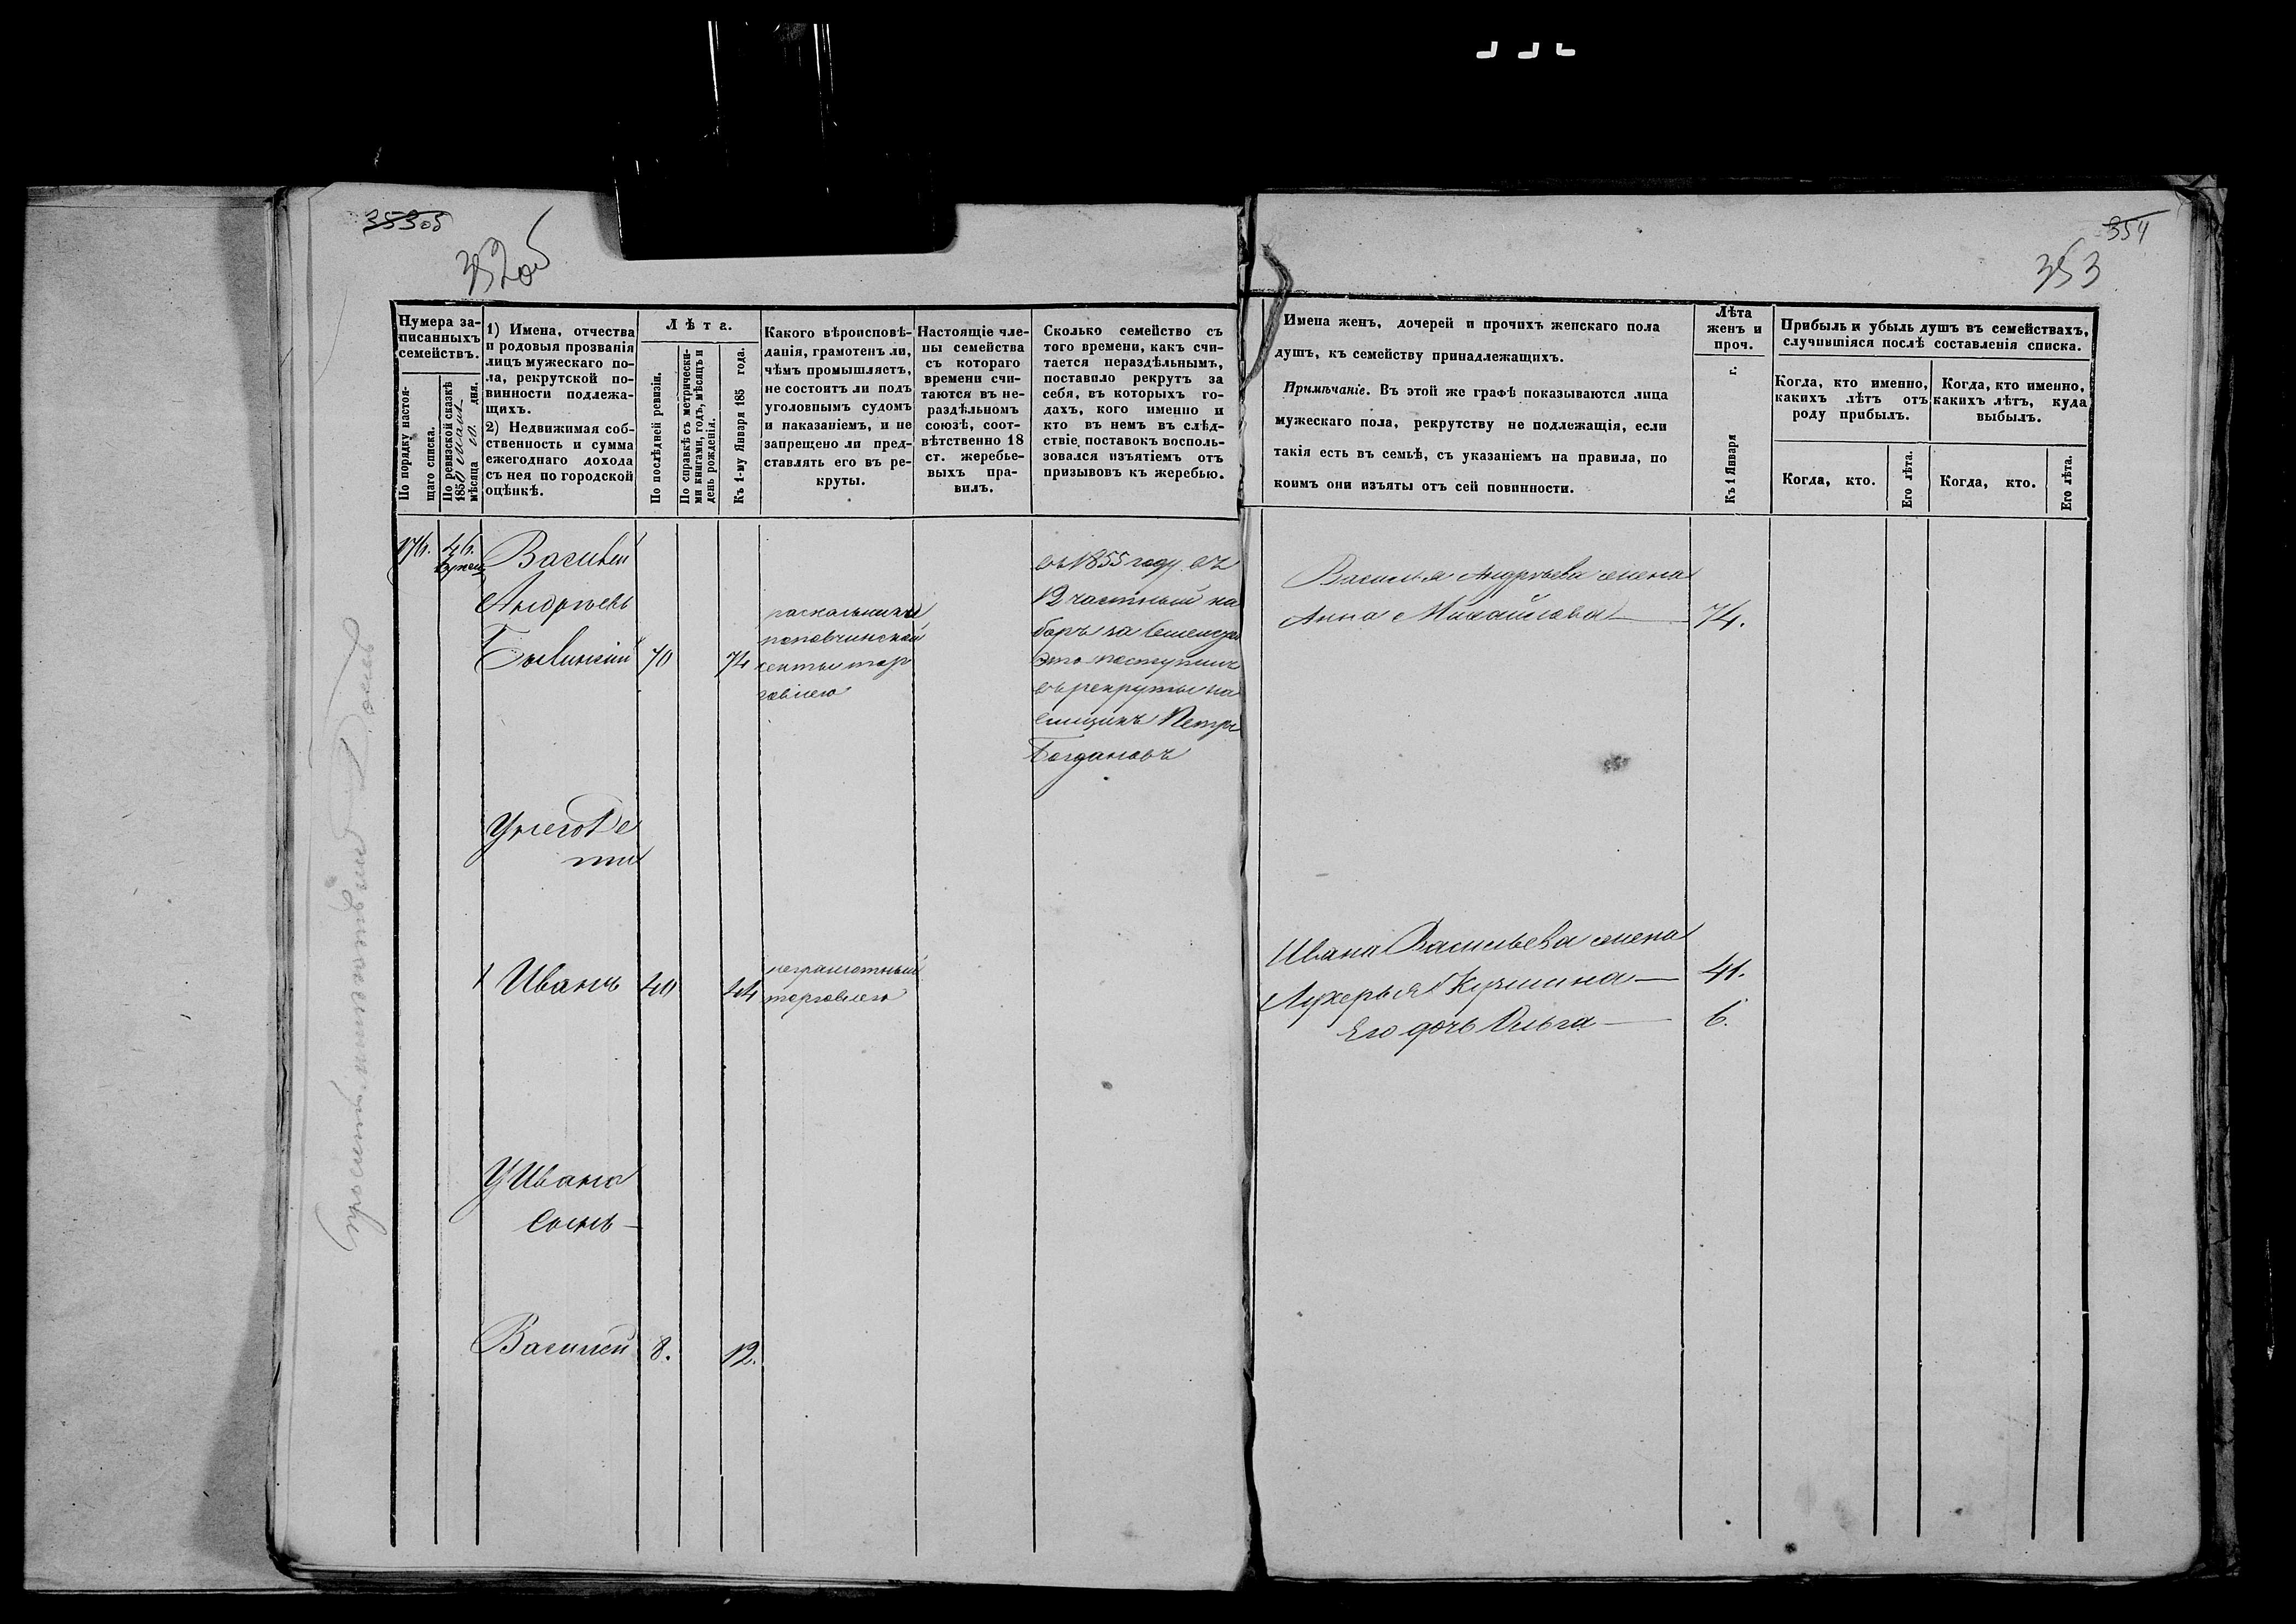 353об
352об
Нумера за-
писанныхъ
семействъ.
По порядку настоя-
щаго списка.
По ревизской сказкѣ
185
мѣсяца 10. дня.
1) Имена, отчества
и родовыя прозванія
лицъ мужескаго по-
ла, рекрутской по-
винности подлежа-
щихъ.
2) Недвижимая соб-
ственность и сумма
ежегоднаго дохода
съ нея по городской
оцѣнкѣ.
Лѣта.
По послѣдней ревизіи.
По справкѣ съ метрически-
ми книгами, годъ, мѣсяцъ и
день рожденія.
Къ 1-му Января 185 года.
Какого вѣроисповѣ-
данія, грамотенъ ли,
чѣмъ промышляетъ,
не состоитъ ли подъ
уголовнымъ судомъ
и наказаніемъ, и не
запрещено ли пред-
ставлять его въ ре-
круты.
Настоящіе чле-
ны семейства
съ котораго
времени счи-
таются въ не-
раздѣльномъ
союзѣ, соот-
вѣтственно 18
ст. жеребье-
выхъ пра-
вилъ.
Сколько семейство съ
того времени, какъ счи-
тается нераздѣльнымъ,
поставило рекрутъ за
себя, въ которыхъ го-
дахъ, кого именно и
кто въ немъ въ слѣд-
ствіе поставокъ восполь-
зовался изъятіемъ отъ
призывовъ къ жеребью.
176. 46.
Василей
Андреевъ
70 74
раскольникъ
поповчинской
секты тор
говлею
въ 1855 году въ
12 частный на
боръ за семейст
это поступилъ
въ рекруты на
емщикъ Петръ
Богдановъ
У него Де
ти
1 Иванъ 40 44
неграмотный
торговлею
У Ивана
Сынъ
Василей 8. 12.
354
353
Имена женъ, дочерей и прочихъ женскаго пола
душъ, къ семейству принадлежащихъ.
Примѣчаніе. Въ этой же графѣ показываются лица
мужескаго пола, рекрутству не подлежащія, если
такія есть въ семьѣ, съ указаніемъ на правила, по
коимъ они изъяты отъ сей повинности.
Лѣта
женъ и
проч.
Къ 1 Января г.
Прибыль и убыль душъ въ семействахъ,
случившіяся послѣ составленія списка.
Когда, кто именно,
какихъ лѣтъ отъ
роду прибылъ.
Когда, кто именно,
какихъ лѣтъ, куда
выбылъ.
Когда, кто.
Его лѣта.
Когда, кто.
Его лѣта.
Василья Андреева жена
Анна Михайлова 74.
Ивана Васильева жена
Лукерья Кузмина 41.
Его дочь Ольга 6.